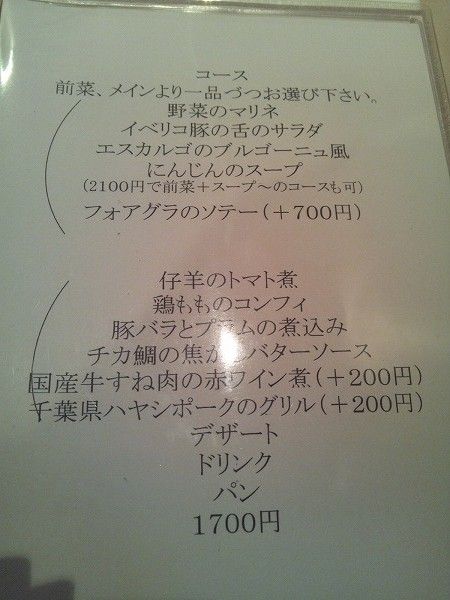 コース
前菜、メインより一品づつお選び下さい。
野菜のマリネ
イベリコ豚の舌のサラダ
エスカルゴのブルゴーニュ風
にんじんのスープ
(2100円で前菜+スープ~のコースも可)
フォアグラのソテー(+700円)
仔羊のトマト煮
鶏もものコンフィ
豚バラとプラムの煮込み
チカ鯛の焦がしバターソース
国産牛すね肉の赤ワイン煮(+200円)
千葉県ハヤシポークのグリル(+200円)
デザート
ドリンク
パン
1700円